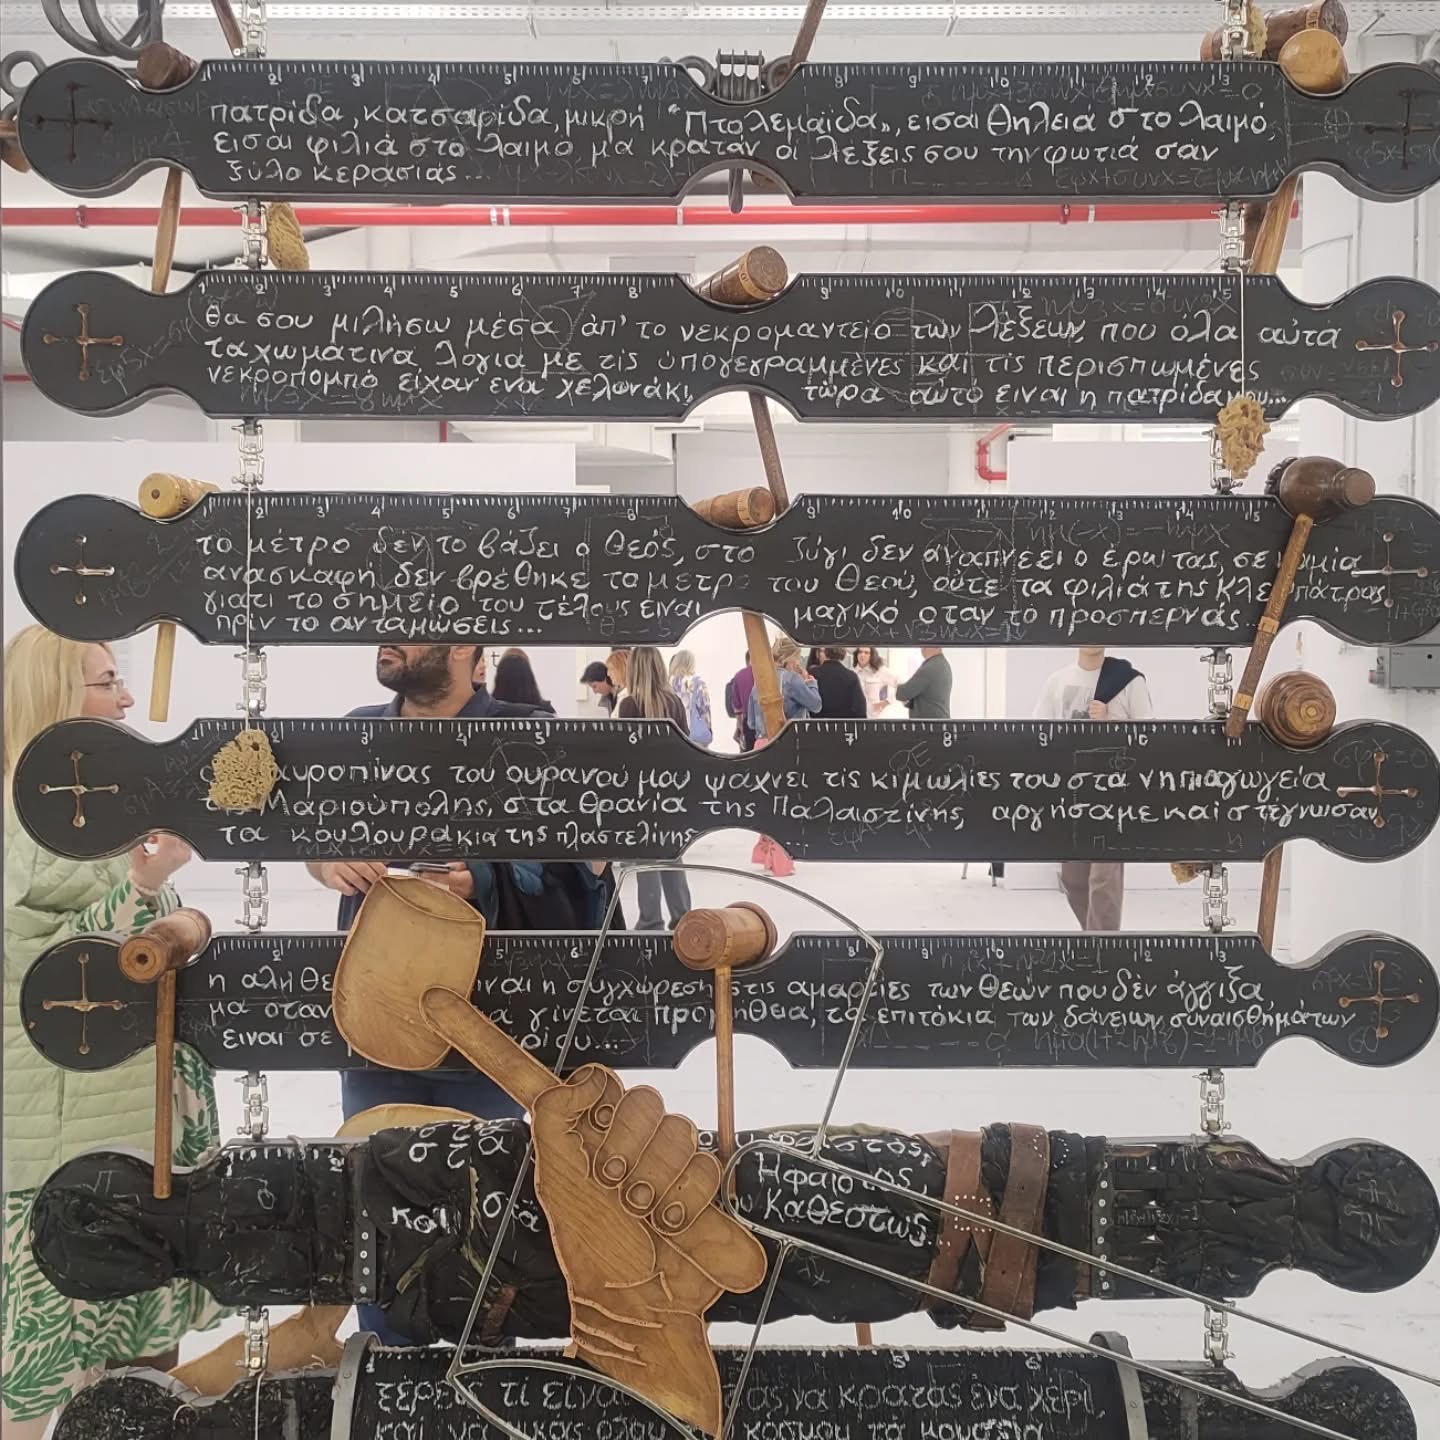 πατρίδα, κατσαρίδα, μικρή "Πτολεμαΐδα", εισαι θηλειά στο λαιμό,
εισαι φιλιά στο λαιμό μα κρατάν οι λέξεις σου την φωτιά σαν
ξύλο κερασιάς...
θα σου μιλήσω μέσα ἀπ' το νεκρομαντείο των λέξεων, που όλα αὐτα
τα χωμάτινα λογια με τις ὑπογεγραμμένες και τις περισπωμένες
νεκροπομπό είχαν ενα χελωνάκι, τώρα αὐτό ειναι η πατρίδα μου...
το μέτρο δεν το βάζει ο Θεός, στο ζύγι δεν αναπνέει ο έρωτας, σε μία
ανασκαφή δεν βρέθηκε το μετρο του Θεού, ούτε τα φιλιά της Κλεοπάτρας
γιατι το σημείο του τέλους ειναι μαγικό οταν το προσπερνάς...
πρίν το ανταμώσεις...
του ουρανού μου ψαχνει τίς κιμωλίες του στα νηπιαγωγεία
Μαριούπολης, στα θρανία της Παλαιστίνης, αργήσαμε καί στέγνωσαν
τα κουλουρακια της πλαστελίνης...
η συγχώρεση στις αμαρτίες των Θεών που δὲν άγγιξα
μα οταν γίνεται προμήθεια, τα επιτόκια των δάνειων συναισθημάτων
ειναι σε
Ηφαιστος,
και Καθεστως.